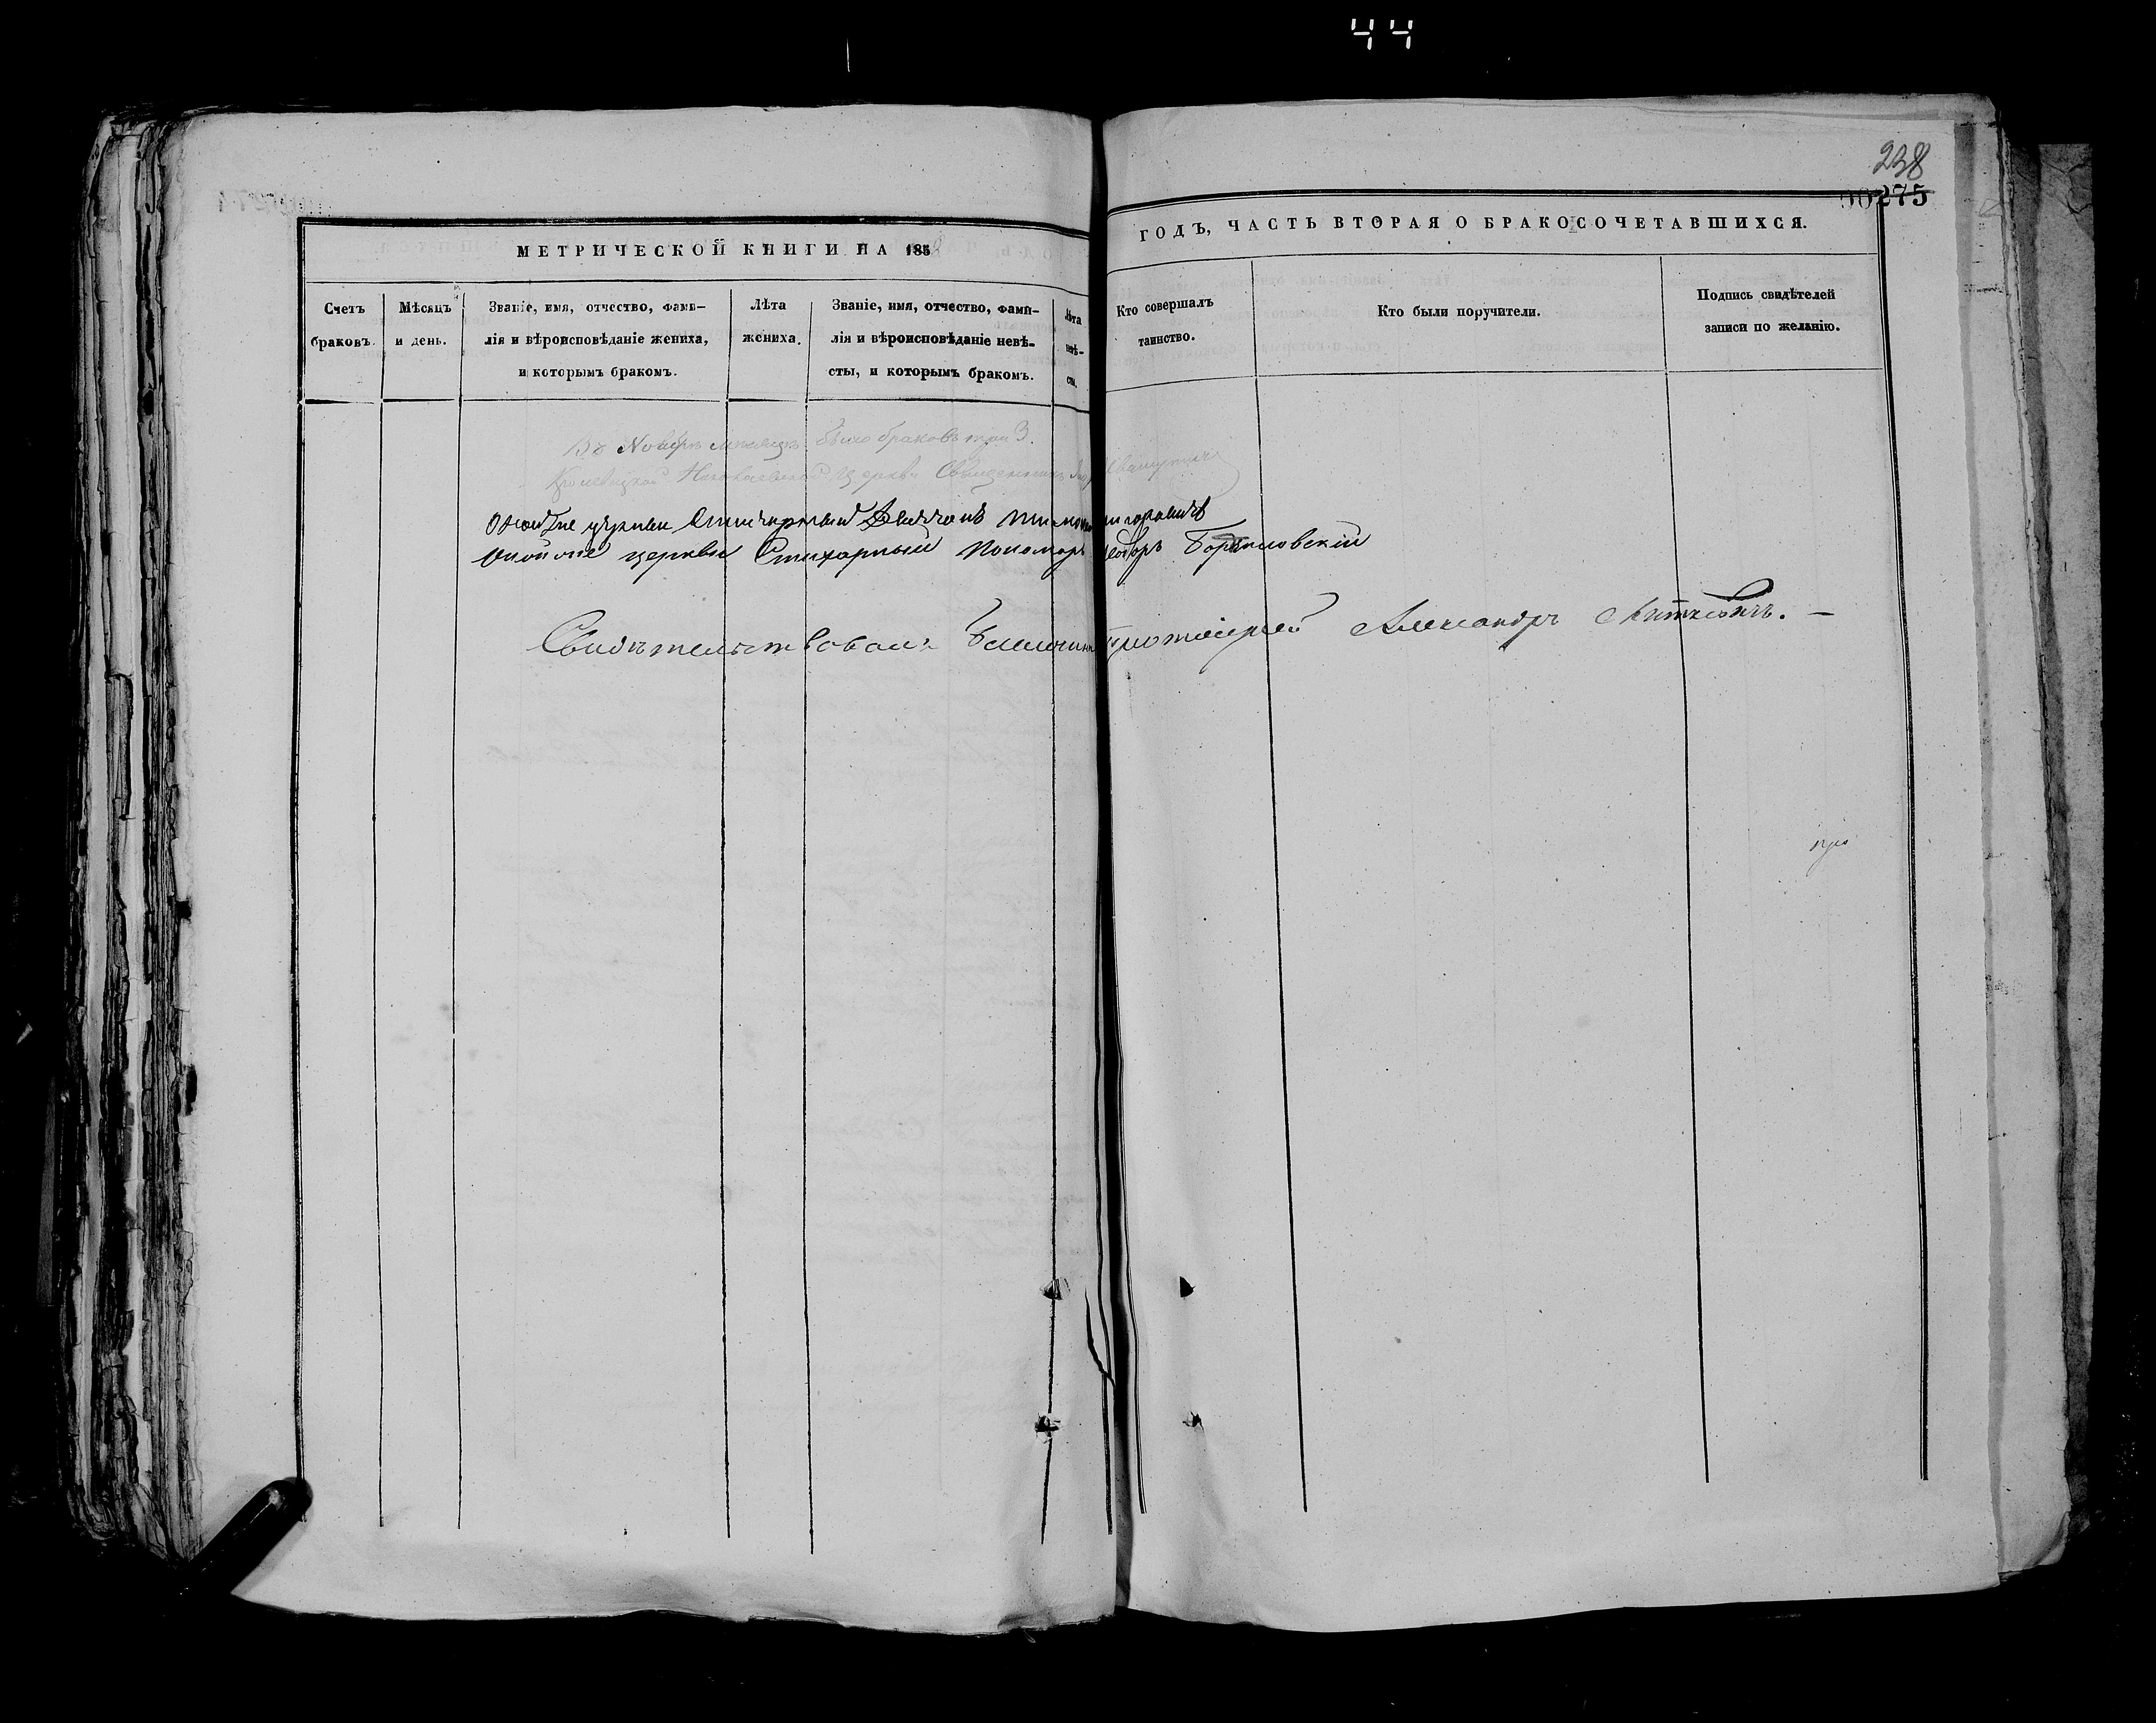 44
238
275
МЕТРИЧЕСКОЙ КНИГИ НА 185
ГОДЪ, ЧАСТЬ ВТОРАЯ О БРАКОСОЧЕТАВШИХСЯ.
Счетъ браковъ.
Мѣсяцъ и день.
Званіе, имя, отчество, фами-
лія и вѣроисповѣданіе жениха,
и которымъ бракомъ.
Лѣта жениха.
Званіе, имя, отчество, фами-
лія и вѣроисповѣданіе невѣ-
сты, и которымъ бракомъ.
Лѣта невѣ-
сты.
Кто совершалъ
таинство.
Кто были поручители.
Подпись свидѣтелей
записи по желанію.
Въ Ноябрѣ мѣсяцѣ было браковъ три 3.
Николаевской церкви Священникъ
церкви Стихарный
Оной же церкви Стихарный Пономарь Ѳеодоръ
Свидѣтельствовалъ Благочинный Протоіерей Александръ